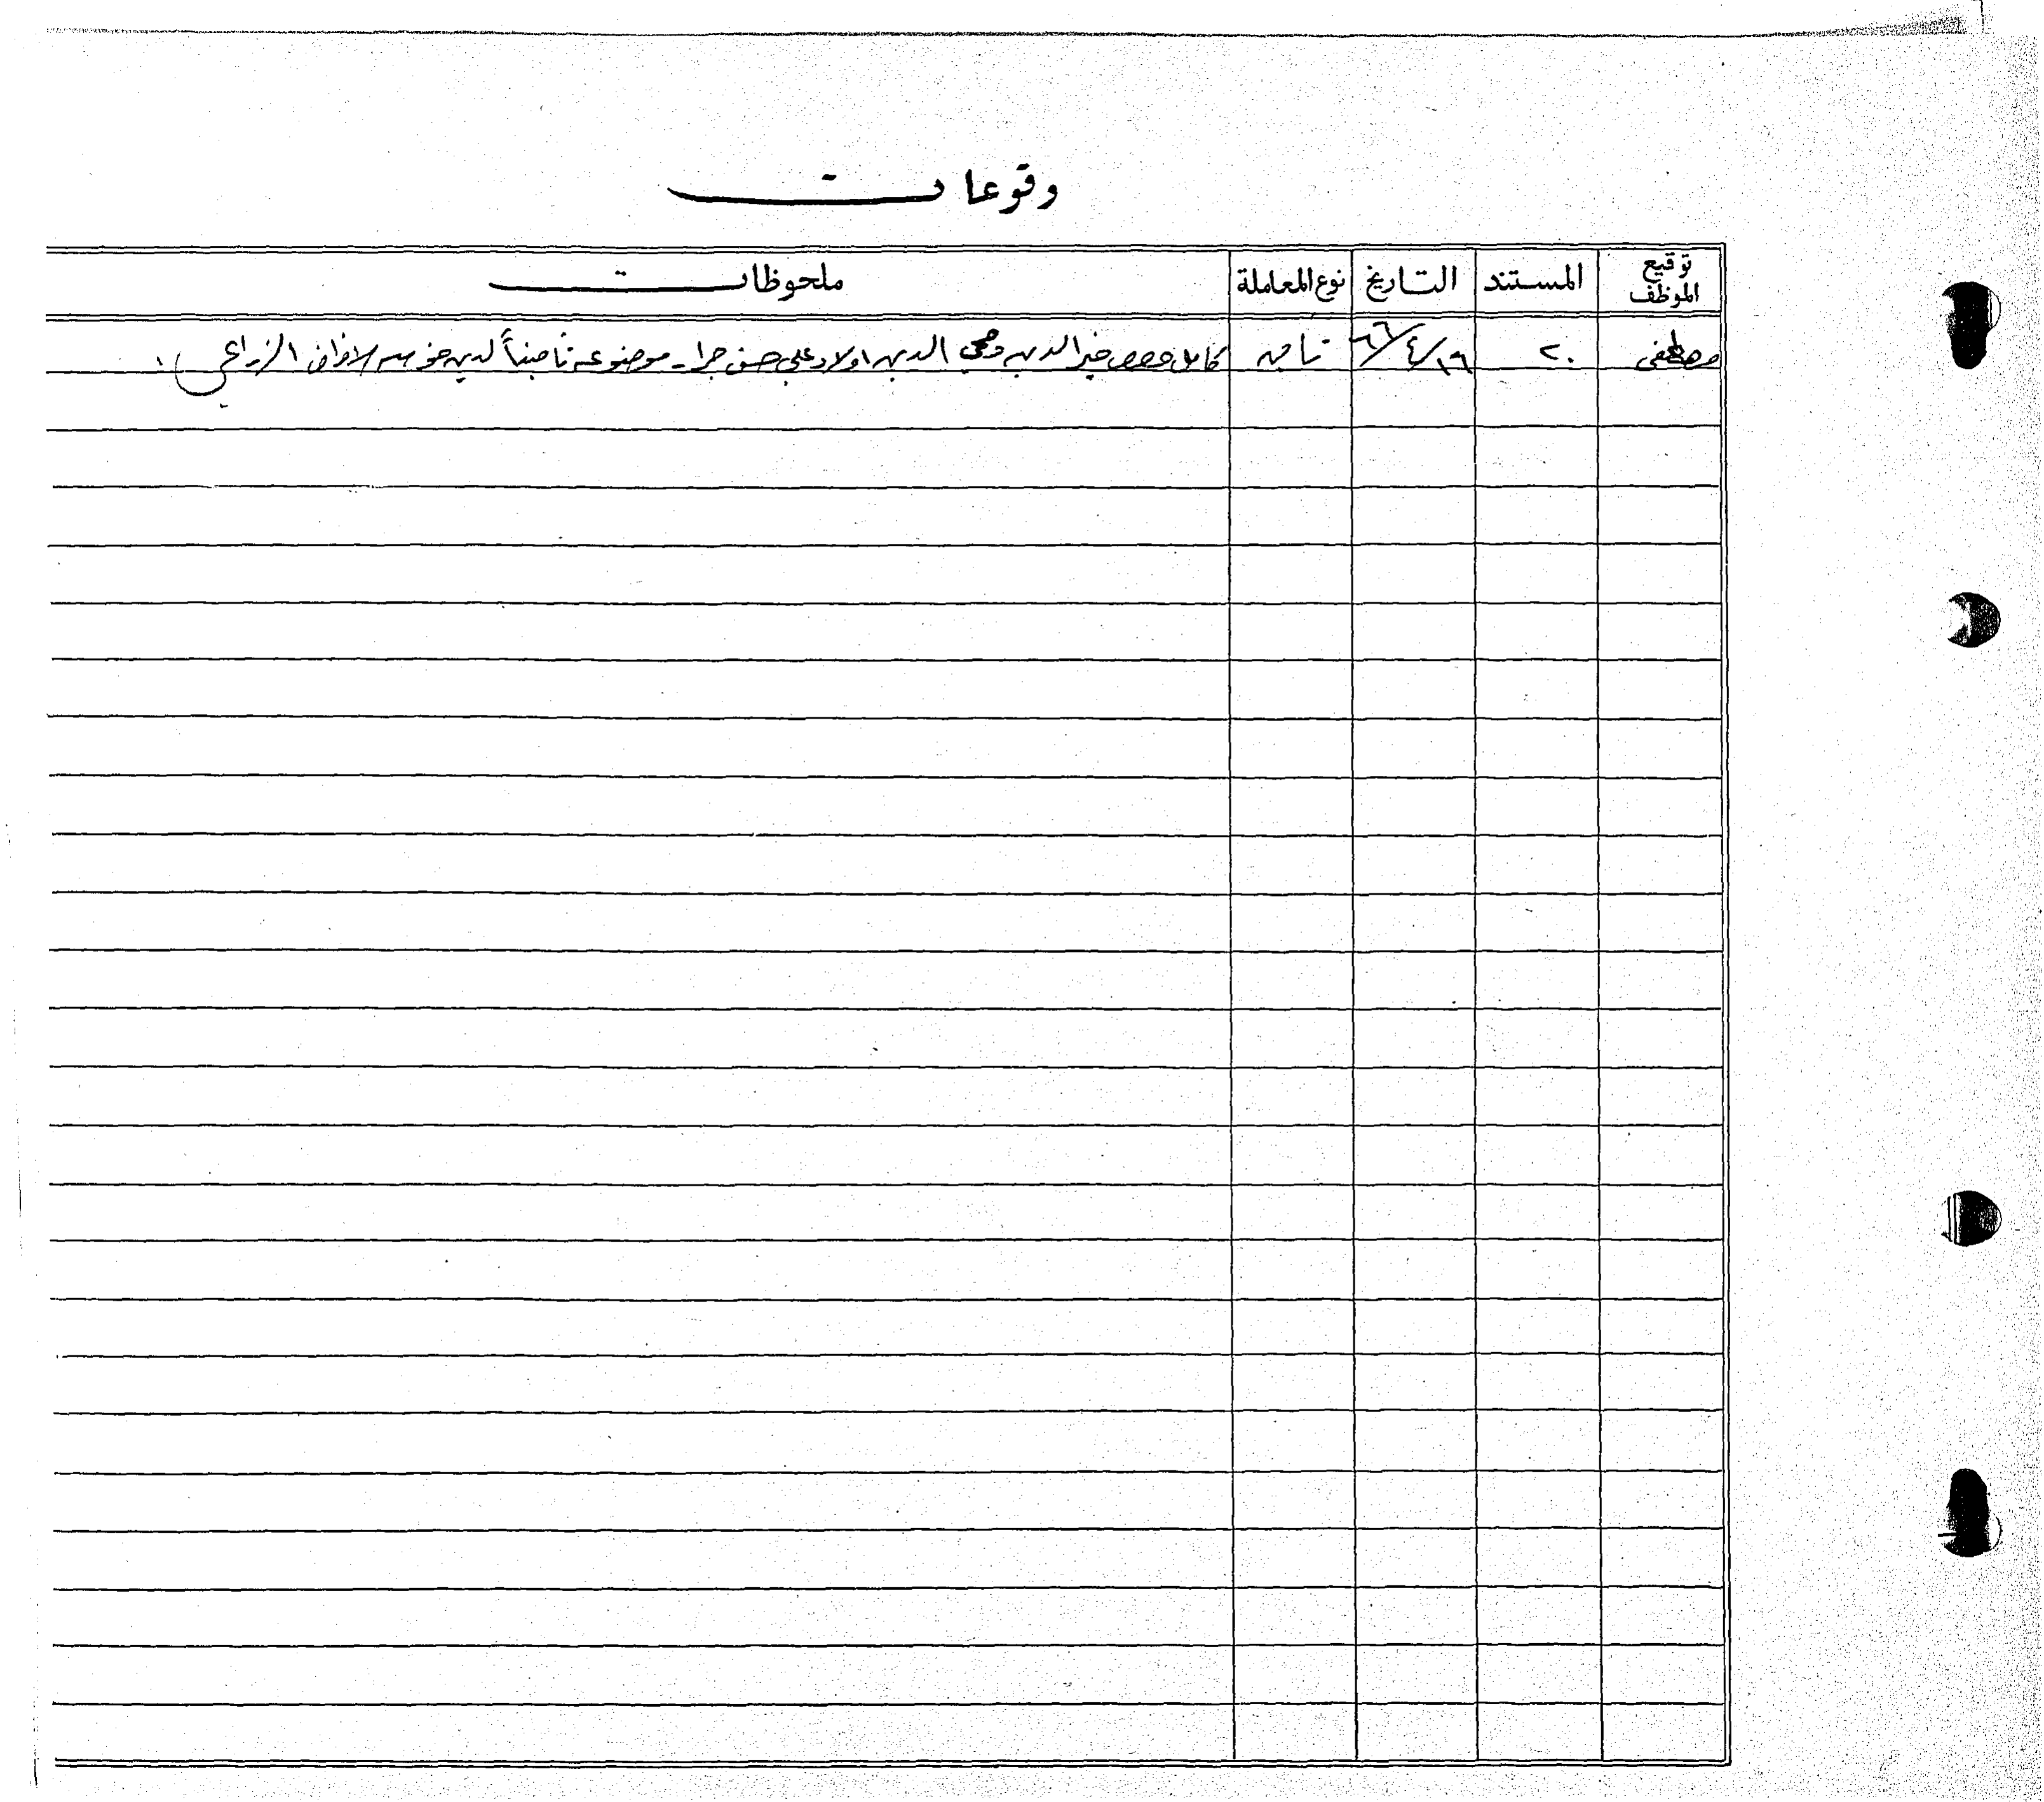 وقوعات
توقيع الموظف المستند التاريخ نوع المعاملة ملحوظات
مصطفى ٢٠ ١٩/٤/٦٦ تامين كامل حصص خير الدين ومحي الدين اولاد علي حسن جرا - موضوعة تأميناً لدين مؤسسة الاقراض الزراعي